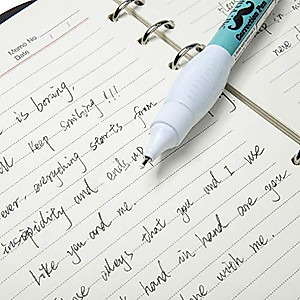 Memo No.
Date
Correction Pen
is boring,
keep smiling!!!
ever, everything starts from
insipidity and ends up
Like you and me.
alleys that you and I use
hand in hand are you
one with me.